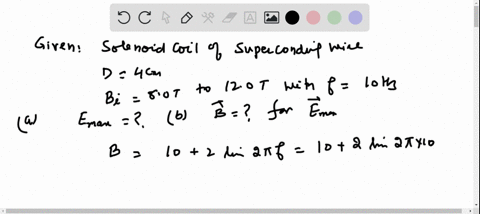 Given: Solenoid Coil of Superconducting wire
D = 4cm
Bi = 8.0T to 12.0T with f = 10Hz
(a) Emax = ?. (b) B⃗ = ? for E⃗max
B = 10 + 2 sin 2πf = 10 + 2 sin 2π×10